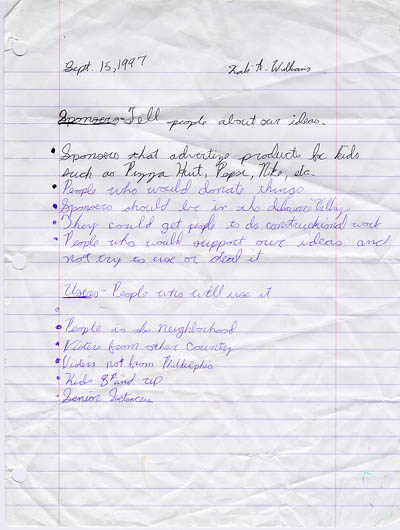 Sept. 15, 1997 A. Williams
Sponsors - Tell people about our ideas.
• Sponsors that advertize products for kids
such as Pizza Hut, Pepsi, Nike, etc.
• People who would donate things
• Sponsors should be in the delaware Valley
• They could get people to do constructional work
• People who would support our ideas and
not try to use or deal it
Users - People who will use it
• People in the neighborhood
• Visters from other County
• Visters not from
• Kids 8 and up
• Senior